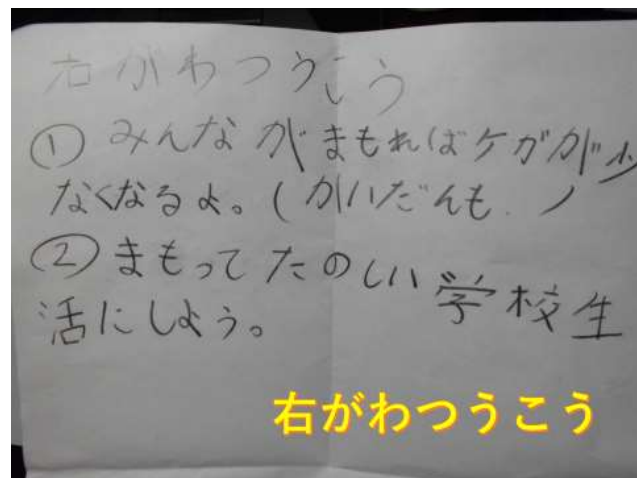 右がわつうこう
① みんながまもればケガが少
なくなるよ。(かいだんも.)
② まもってたのしい学校生
活にしよう。
右がわつうこう